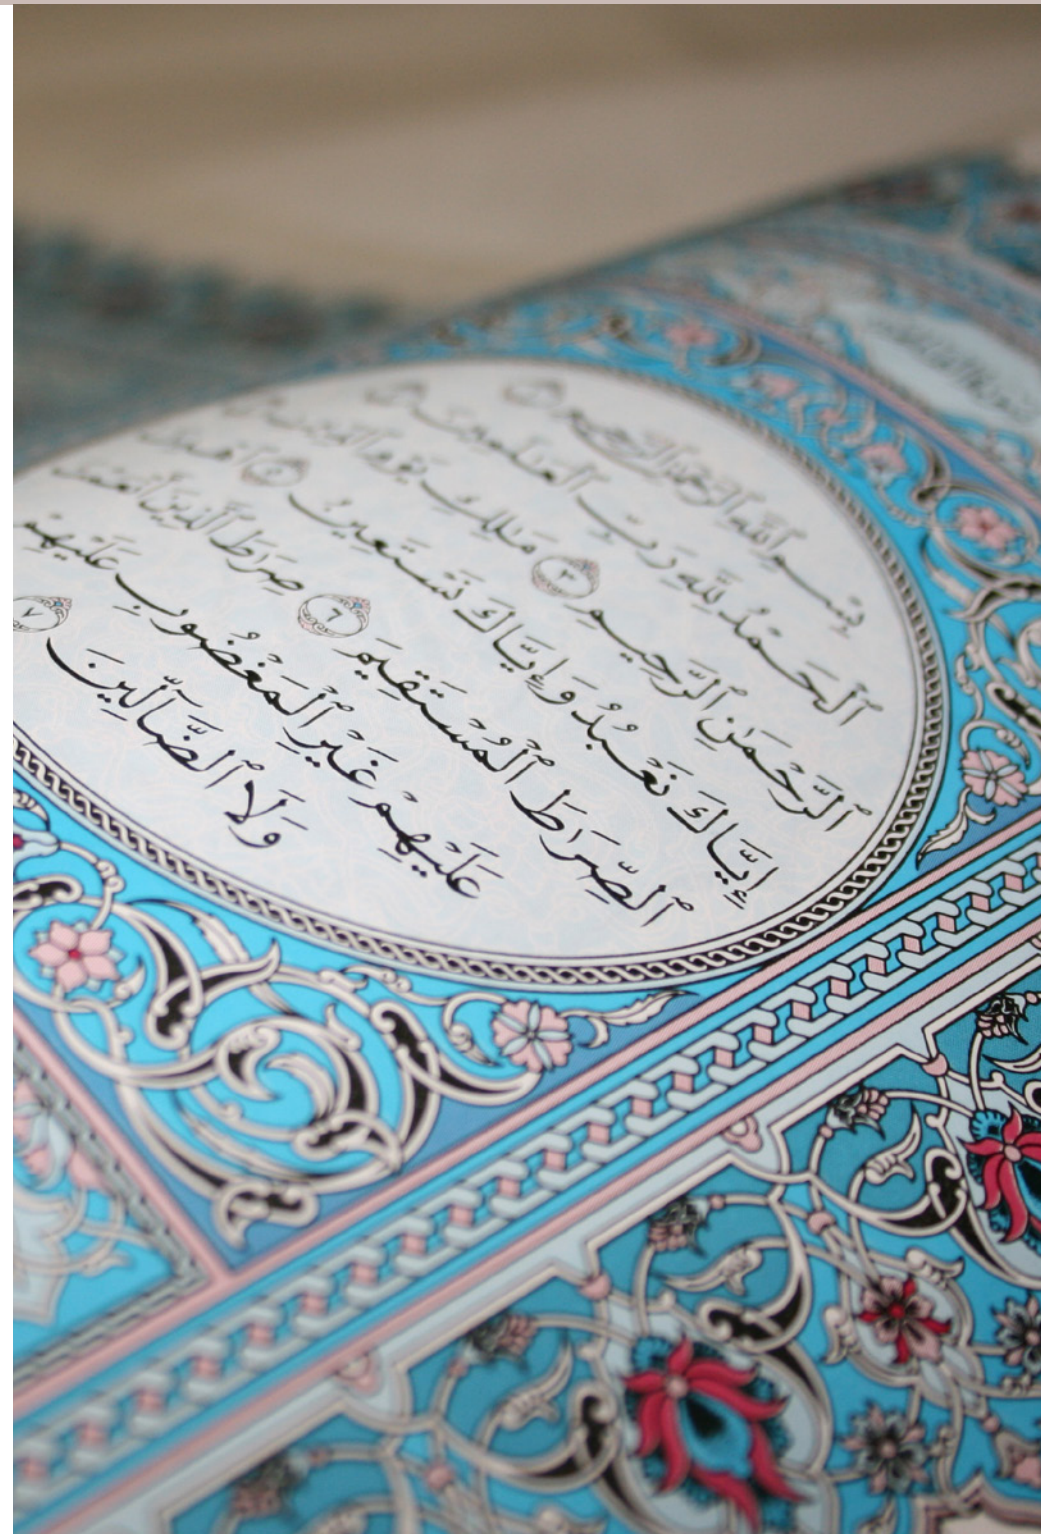 بِسْمِ ٱللَّهِ ٱلرَّحْمَٰنِ ٱلرَّحِيمِ
ٱلْحَمْدُ لِلَّهِ رَبِّ ٱلْعَٰلَمِينَ
ٱلرَّحْمَٰنِ ٱلرَّحِيمِ ٣ مَٰلِكِ يَوْمِ ٱلدِّينِ
إِيَّاكَ نَعْبُدُ وَإِيَّاكَ نَسْتَعِينُ ٥ ٱهْدِنَا
ٱلصِّرَٰطَ ٱلْمُسْتَقِيمَ ٦ صِرَٰطَ ٱلَّذِينَ أَنْعَمْتَ
عَلَيْهِمْ غَيْرِ ٱلْمَغْضُوبِ عَلَيْهِمْ
وَلَا ٱلضَّآلِّينَ ٧